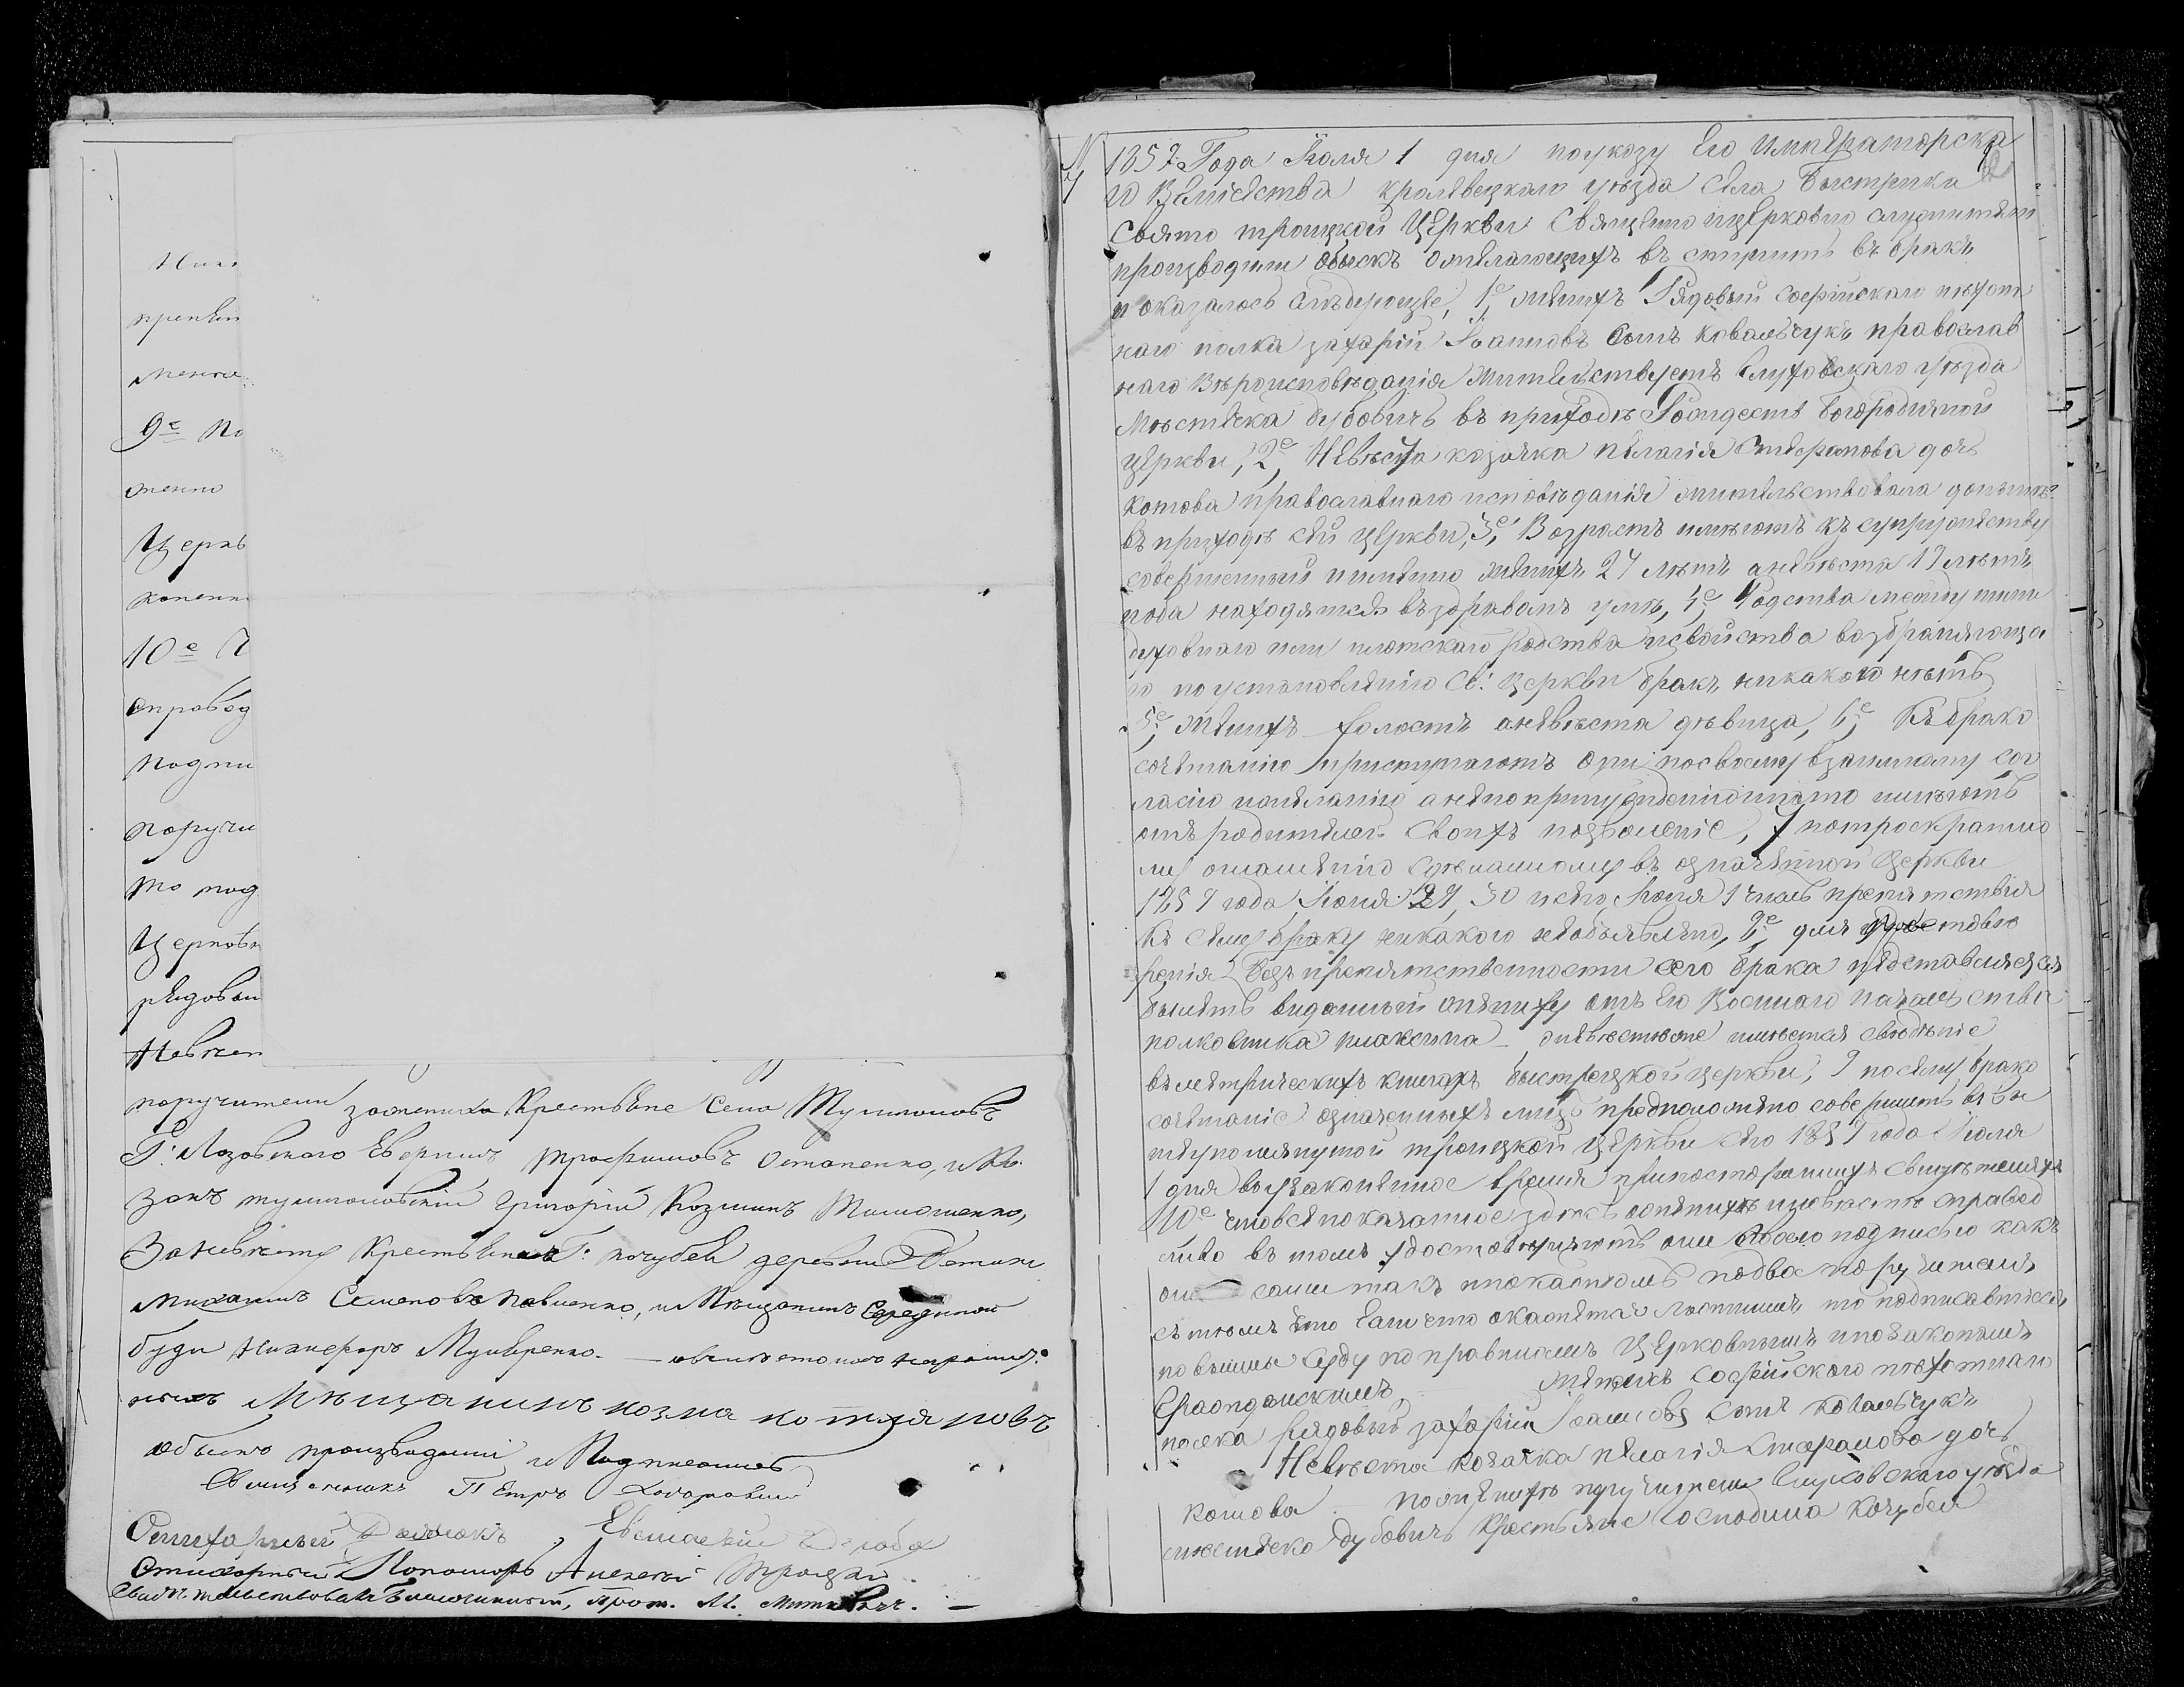 Ник
препят
менова
9е По
женно
Церкв
коненн
10е Ч
справед
подпи
поручи
то под
Церковн
рядовы
Невест
поручители за жениха Крестьяне села Тулиголовъ
Г. Лазовскаго Трофимовъ Остапенко, и Ко
закъ тулиголовский Григорій Козминъ Тимошенко,
За невесту Крестьянинъ Г: кочубея деревни
михаилъ Семеновъ Павленко, и Мещанинъ Середины
буды Никифоръ —
Мещанинъ козма котляровъ
обыскъ производили и Подписались
Священникъ Петръ
Стихарный Дьячокъ Евстафий
Стихарный Пономарь Алексей Троцкий
Свидетельствовалъ благочинный, Прот. М. —
N 1857 Года Іюля 1 дня по указу Его Императорска
7 го Величества кролевецкаго уезда села Быстрика
Свято троицкой Церкви Священно и церковно служители
производили обыскъ о желающихъ вступить въ бракъ
и оказалось следующее, 1е, женихъ Рядовый софійскаго пехот
наго полка захарій Іоанновъ сынъ ковальчукъ православ
наго вероисповеданія жительствуетъ Глуховскаго уезда
Местечка дубовичъ въ приходе Рождеств богородичной
церкви, 2е, Невеста козачка пелагія Стефанова дочь
котова православнаго исповеданія жительствовала доныне
въ приходе сей церкви, 3е, Возрастъ имеютъ къ супружеству
совершенный и именно женихъ 27 летъ а невеста 17 летъ
и оба находятся въ здравомъ уме, 4е, Родства между ними
духовнаго или плотскаго родства и свойства возбраняюща
го по установленію Св: церкви бракъ никакого нетъ
5е, Женихъ холостъ а невеста девица, 6е, Къ брако
сочетанію приступаютъ они по своему взаимному сог
ласію и желанію а не по принужденію и на то имеютъ
отъ родителей своихъ позволеніе, 7 по троекратно
му оглашенію сделанному въ означенной церкви
1857 года Іюня 29, 30 и сего Іюля 1 чиселъ препятствія
къ сему браку никакого не объявлено, 8е, для удостове
ренія безпрепятственности сего брака представляется
билетъ выданный жениху отъ Его Военнаго начальства
полковника а о невесте имеется сведеніе
въ метрическихъ книгахъ быстрецкой церкви, 9 по сему брако
сочетаніе означенныхъ лицъ предположено совершить въ вы
шеупомянутой троицкой церкви сего 1857 года Іюля
1 дня въ узаконенное время при постороннихъ свидетеляхъ
10е что все показанное здесь о женихе и невесте справед
ливо въ томъ удостоверяютъ они своею подписью какъ
они сами такъ и по каждомъ по два поручителя
съ темъ что если что окажется ложнымъ то подписавшіеся
повинны суду по правиламъ Церковнымъ и по законамъ
Гражданскимъ, женихъ Софийскаго пехотнаго
полка рядовый захарий Іоанновъ сынъ ковальчукъ
Невеста козачка пелагія Стефанова дочь
котова — по женихе поручители Глуховскаго уезда
местечка дубовичъ Крестьяне Господина кочубея